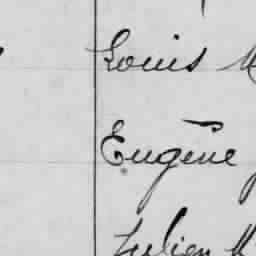 Louis
Eugène
Julien